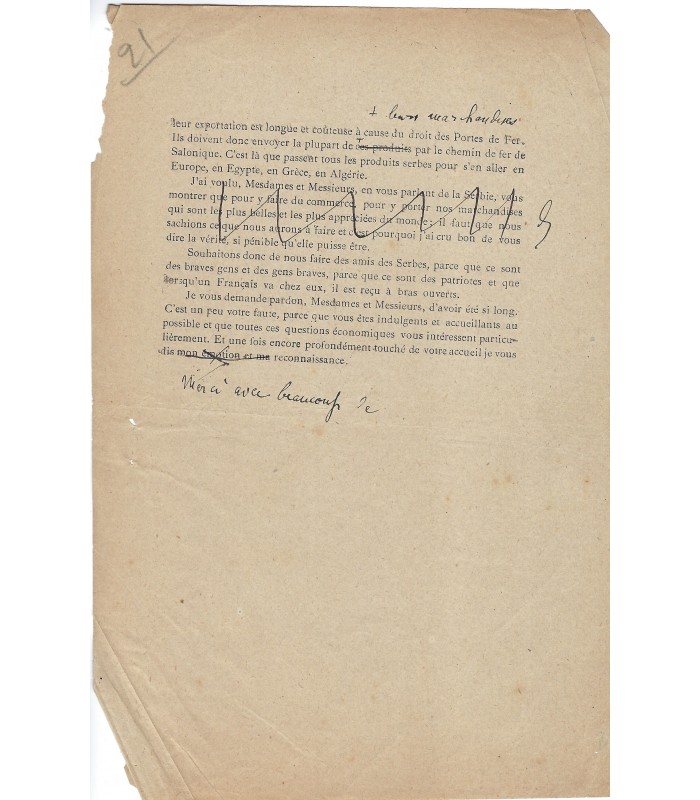 21
+ leurs marchandises
leur exportation est longue et coûteuse à cause du droit des Portes de Fer.
Ils doivent donc envoyer la plupart de ces produits par le chemin de fer de
Salonique. C'est là que passent tous les produits serbes pour s'en aller en
Europe, en Egypte, en Grèce, en Algérie.
J'ai voulu, Mesdames et Messieurs, en vous parlant de la Serbie, vous
montrer que pour y faire du commerce, pour y porter nos marchandises
qui sont les plus belles et les plus appréciées du monde; il faut que nous
sachions ce que nous aurons à faire et c'est pourquoi j'ai cru bon de vous
dire la vérité, si pénible qu'elle puisse être.
Souhaitons donc de nous faire des amis des Serbes, parce que ce sont
des braves gens et des gens braves, parce que ce sont des patriotes et que
lorsqu'un Français va chez eux, il est reçu à bras ouverts.
Je vous demande pardon, Mesdames et Messieurs, d'avoir été si long.
C'est un peu votre faute, parce que vous êtes indulgents et accueillants au
possible et que toutes ces questions économiques vous intéressent particu-
lièrement. Et une fois encore profondément touché de votre accueil je vous
dis mon émotion et ma reconnaissance.
Merci avec beaucoup de